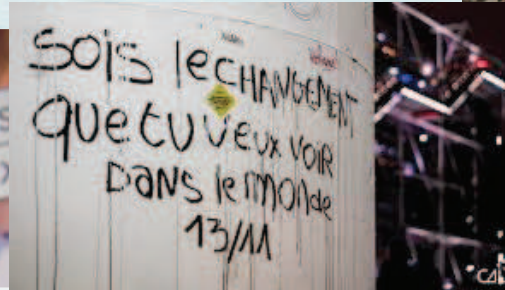 SOIS le CHANGEMENT
que tu veux VOIR
DANS le monde
13/11